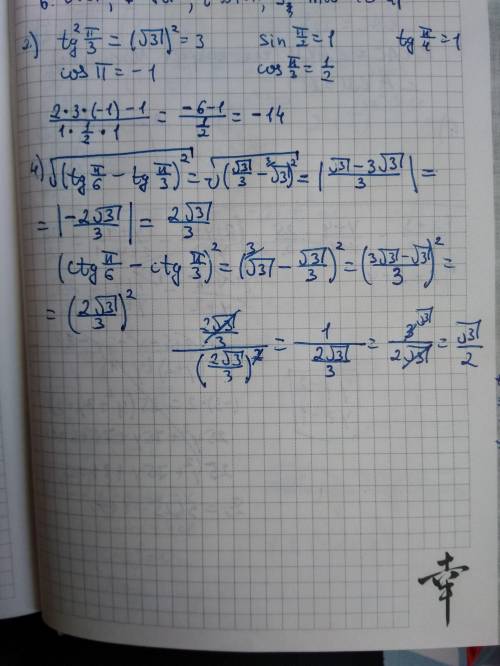 2.) tg² π/3 = (√3)² = 3   sin π/2 = 1   tg π/4 = 1
cos π = -1   cos π/3 = 1/2
(2·3·(-1)-1)/(1·1/2·1) = (-6-1)/(1/2) = -14
4) √((tg π/6 - tg π/3)²) = √((√3/3 - ³√3)²) = |(√3-3√3)/3| =
= |-2√3/3| = 2√3/3
(ctg π/6 - ctg π/3)² = (³√3 - √3/3)² = ((3√3-√3)/3)² =
= (2√3/3)²
(2√3/3)/((2√3/3)²) = 1/(2√3/3) = 3√3/(2√3) = √3/2
幸